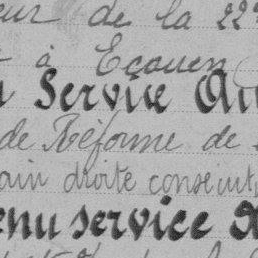 eur de la 22e
à Ecouen
Service Au
de Réforme de
ain droite consécut
enu service